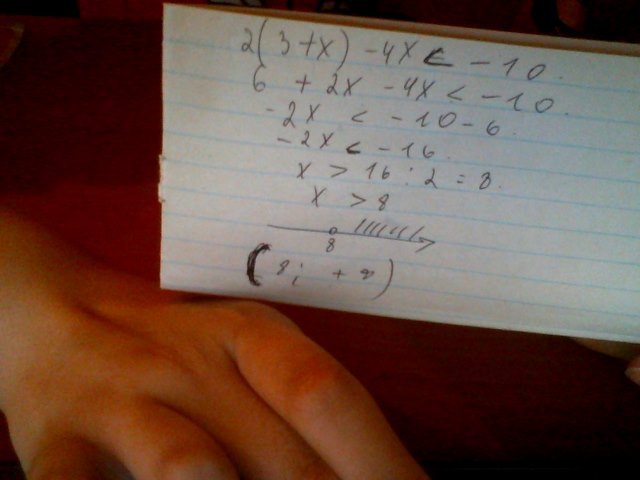 2(3+x) -4x < -10.
6 + 2x -4x < -10.
-2x < -10-6.
-2x < -16.
x > 16 : 2 = 8.
x > 8
8
(8; +∞)